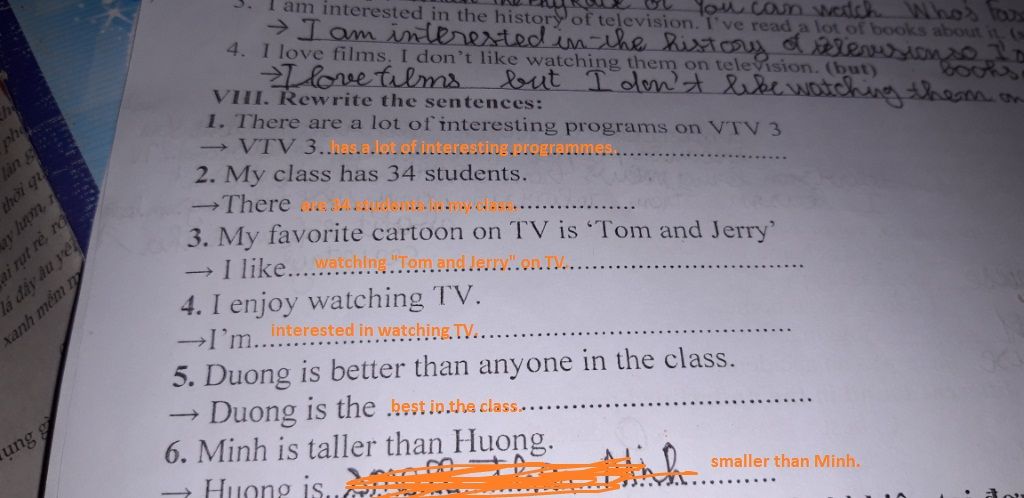 3. I am interested in the history of television. I've read a lot of books about it.
→ I am interested in the history of television so I'
books
4. I love films. I don't like watching them on television. (but)
→ I love films but I don't like watching them on
VIII. Rewrite the sentences:
1. There are a lot of interesting programs on VTV 3
→ VTV 3..has a lot of interesting programmes.
2. My class has 34 students.
→There are 34 students in my class.
3. My favorite cartoon on TV is ‘Tom and Jerry’
→ I like...watching "Tom and Jerry" on TV.
4. I enjoy watching TV.
→I'm....interested in watching TV.
5. Duong is better than anyone in the class.
→ Duong is the best in the class.
6. Minh is taller than Huong.
→ Huong is.. smaller than Minh.